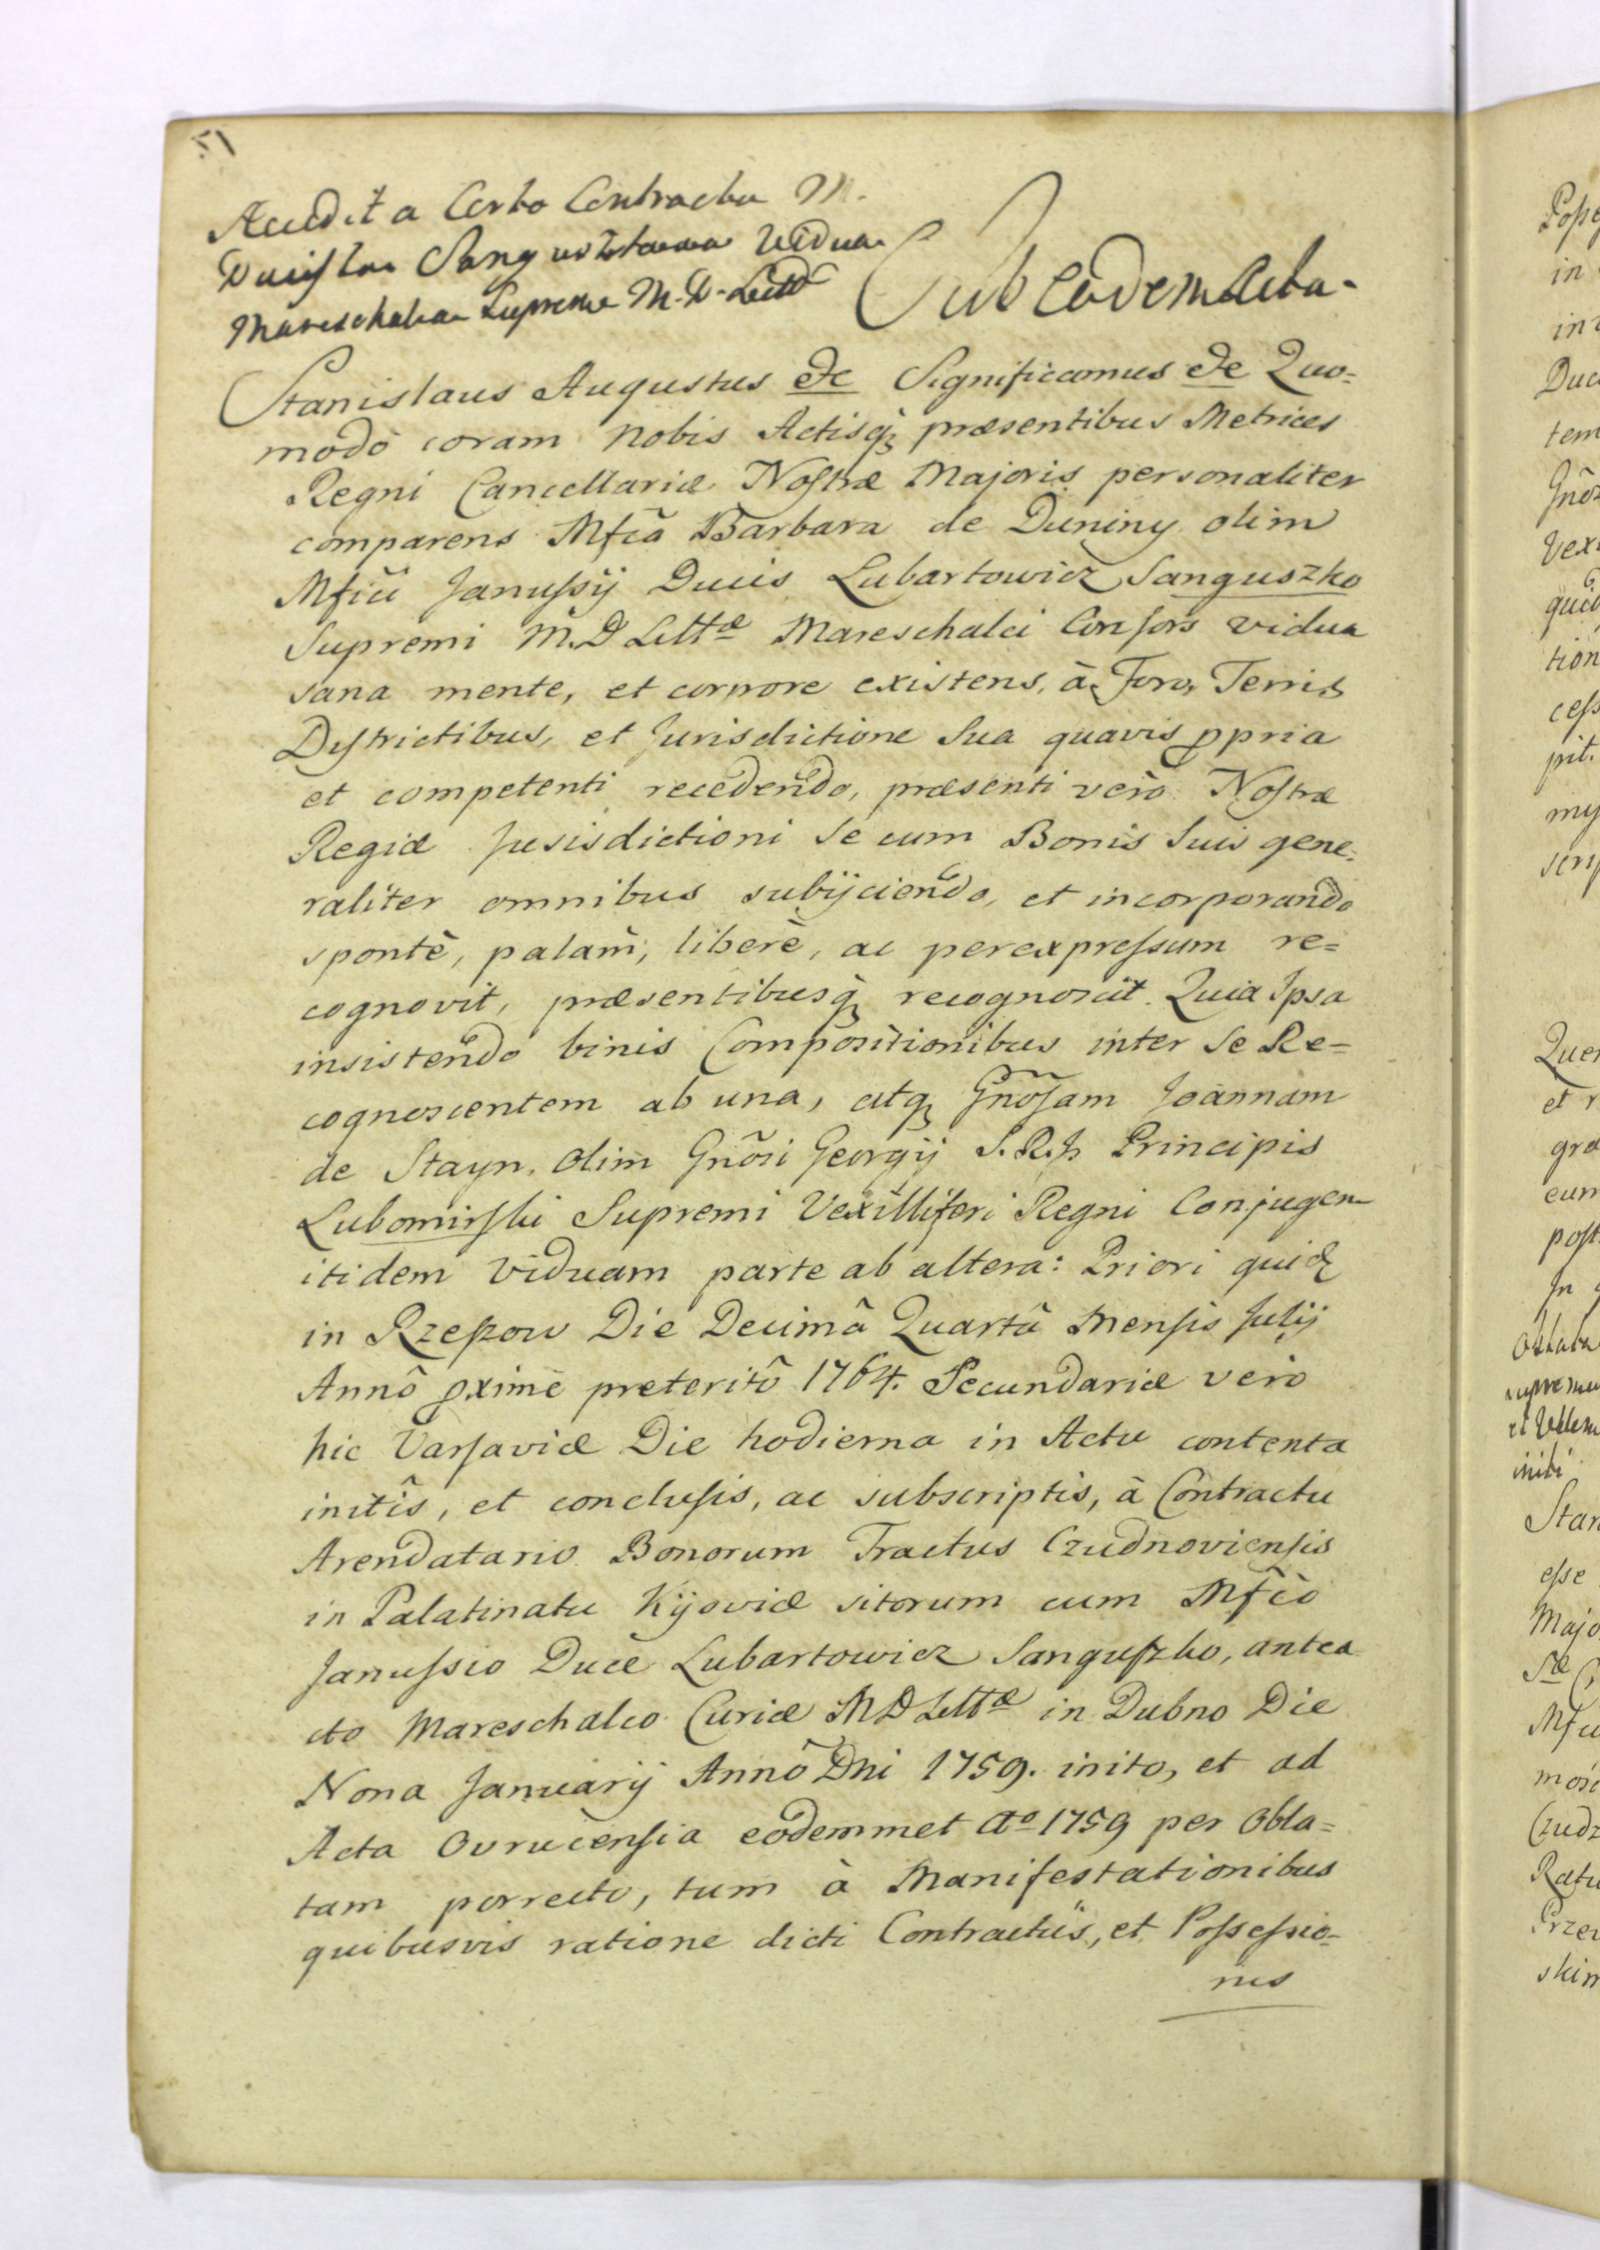 51
Recedit a Certo Contractu M.
Ducissa Sanguszkowa Vidua
Mareschalca Suprema M. D. Littæ
Sub eodem Acta.
Stanislaus Augustus &c Significamus &c Quo=
modo coram Nobis Actisq̃ præsentibus Metrices
Regni Cancellariæ Nostræ Majoris personaliter
comparens Mfcã Barbara de Duniny olim
Mficĩ Janussÿ Ducis Lubartowicz Sanguszko
Supremi M.D Littæ Mareschalci Consors vidua
sana mente, et corpore existens, à Foro, Terris
Districtibus, et Jurisdictione Sua quavis ppria
et competenti recedendo, præsenti verò Nostræ
Regiæ Jusisdictioni Se cum Bonis Suis gene=
raliter omnibus subijciendo, et incorporando
spontè, palàm, liberè, ac per expressum re=
cognovit, præsentibusq̃ recognoscit. Quia Ipsa
insistendo binis Compositionibus inter Se Re=
cognoscentem ab una, atq̃ Gnõsam Joannam
de Stayn, olim Gnõsi Georgij S.R.I. Principis
Lubomirski Supremi Vexilliferi Regni Conjugem
itidem Viduam parte ab altera: Priori quid̃
in Rzeszow Die Decimâ Quartâ Mensis Julij
Annô pximè preteritô 1764. Secundariæ verò
hic Varsaviæ Die hodierna in Actu contenta
initîs, et conclusis, ac subscriptis, à Contractu
Arendatario Bonorum Tractus Czudnoviensis
in Palatinatu Kijoviæ sitorum cum Mfcõ
Janussio Duce Lubartowicz Sanguszko, antea
cto Mareschalco Curiæ M D Littæ in Dubno Die
Nona Januarij Annô Dni 1759. inito, et ad
Acta Ovrucensia eodemmet Aº 1759 per Obla=
tam porrecto, tum à Manifestationibus
quibusvis ratione dicti Contractûs, et Possessio=
nis